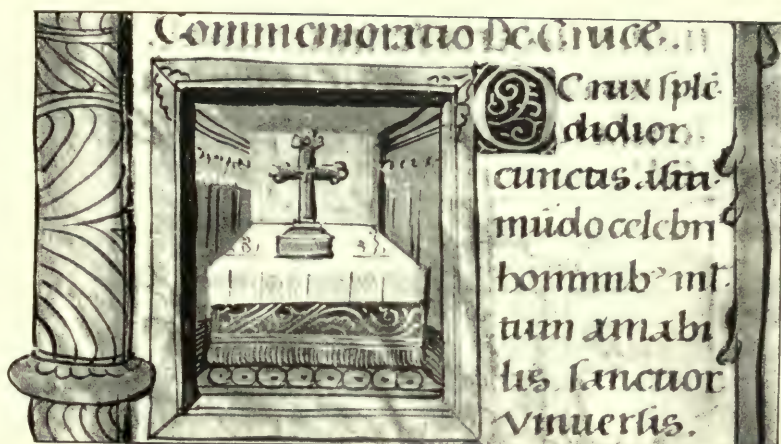 Commemoratio De Cruce.
O Crux splē
didior
cunctis astri
mūdo celebri
hominibꝰ ml
tum amabi
lis sanctior
Vniuersis.